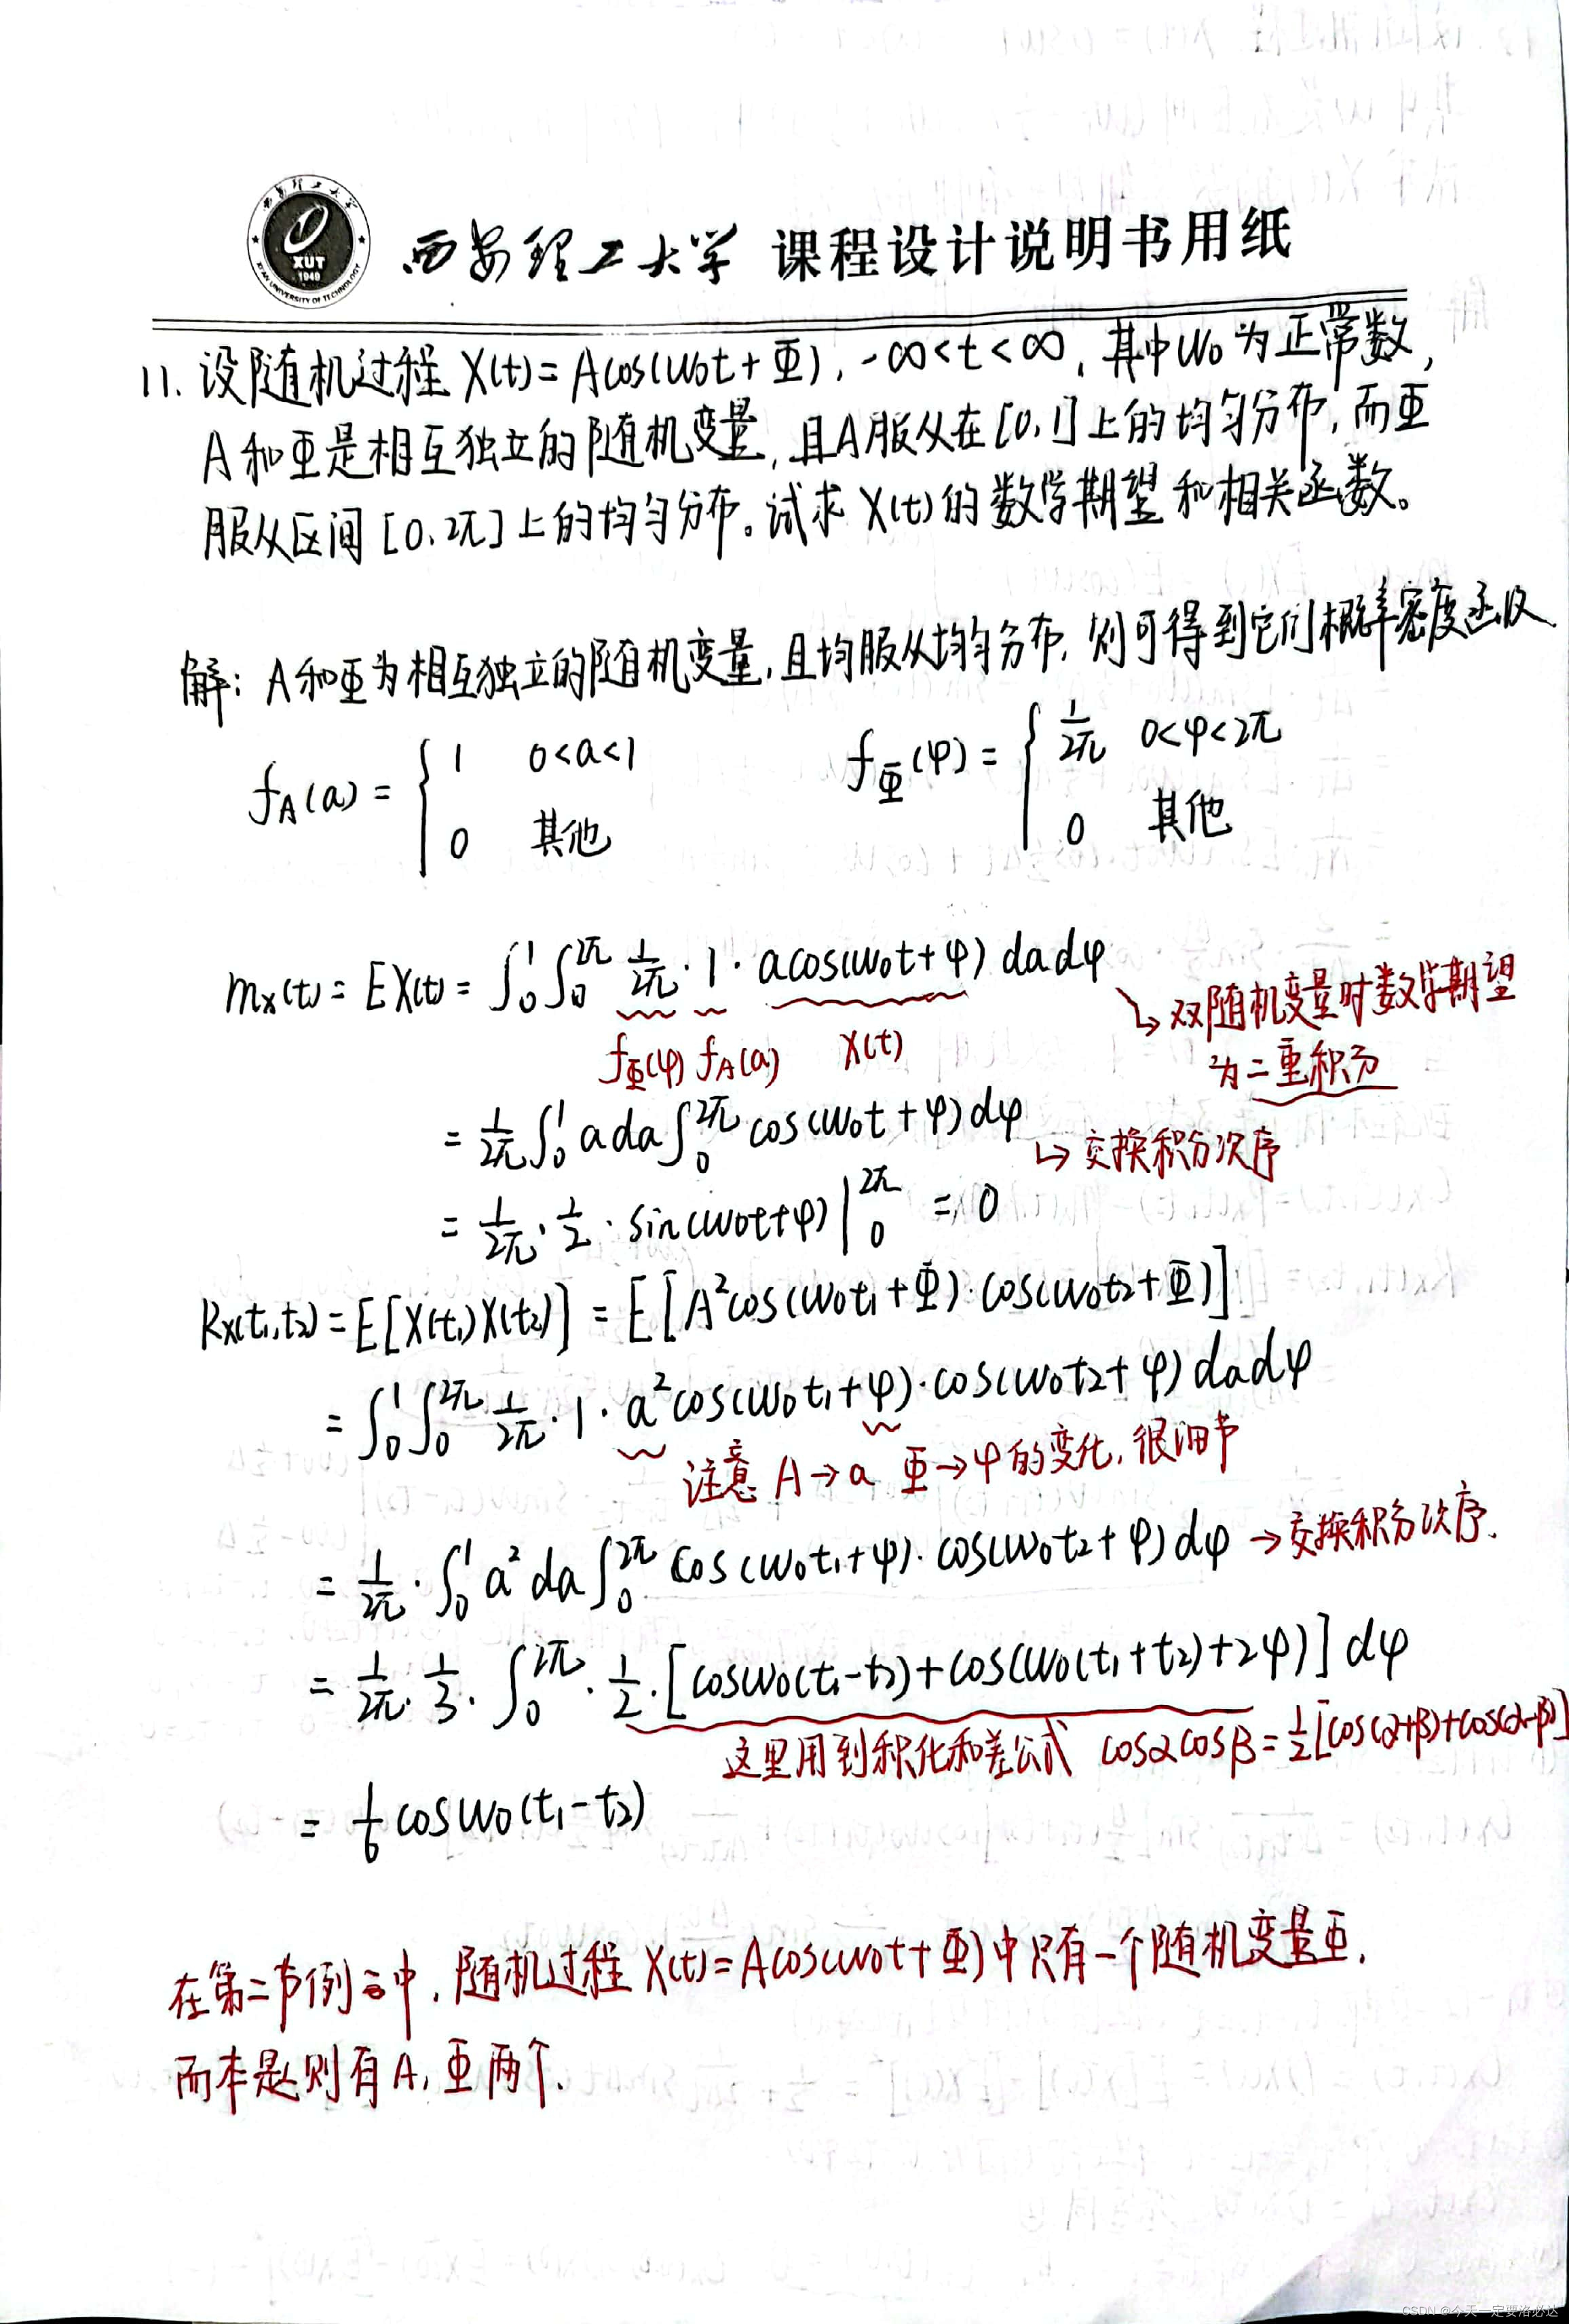 西安理工大学 课程设计说明书用纸
XUT
1949
XI'AN UNIVERSITY OF TECHNOLOGY
11. 设随机过程 X(t)=Acos(ω₀t+Φ), -∞<t<∞, 其中ω₀为正常数,
A和Φ是相互独立的随机变量,且A服从在[0,1]上的均匀分布,而Φ
服从区间[0,2π]上的均匀分布。试求X(t)的数学期望和相关函数。
解: A和Φ为相互独立的随机变量,且均服从均匀分布,则可得到它们概率密度函数
f_A(a) = { 1 0<a<1 ; 0 其他 f_Φ(φ) = { 1/2π 0<φ<2π ; 0 其他
m_X(t) = EX(t) = ∫₀¹∫₀^2π 1/2π · 1 · acos(ω₀t+φ) dadφ
↳ 双随机变量时数学期望
为二重积分
f_Φ(φ) f_A(a) X(t)
= 1/2π ∫₀¹ a da ∫₀^2π cos(ω₀t+φ)dφ
↳ 交换积分次序
= 1/2π · 1/2 · sin(ω₀t+φ)|₀^2π = 0
R_X(t₁,t₂) = E[X(t₁)X(t₂)] = E[A²cos(ω₀t₁+Φ)·cos(ω₀t₂+Φ)]
= ∫₀¹∫₀^2π 1/2π · 1 · a²cos(ω₀t₁+φ)·cos(ω₀t₂+φ) dadφ
注意 A→a Φ→φ的变化,很细节
= 1/2π · ∫₀¹ a² da ∫₀^2π cos(ω₀t₁+φ)·cos(ω₀t₂+φ)dφ → 交换积分次序.
= 1/2π · 1/3 · ∫₀^2π · 1/2 · [cosω₀(t₁-t₂)+cos(ω₀(t₁+t₂)+2φ)] dφ
这里用到积化和差公式 cosαcosβ=1/2[cos(α+β)+cos(α-β)]
= 1/6 cosω₀(t₁-t₂)
在第二节例 中,随机过程X(t)=Acos(ω₀t+Φ)中只有一个随机变量Φ,
而本题则有A,Φ两个.
CSDN @今天一定要洛必达